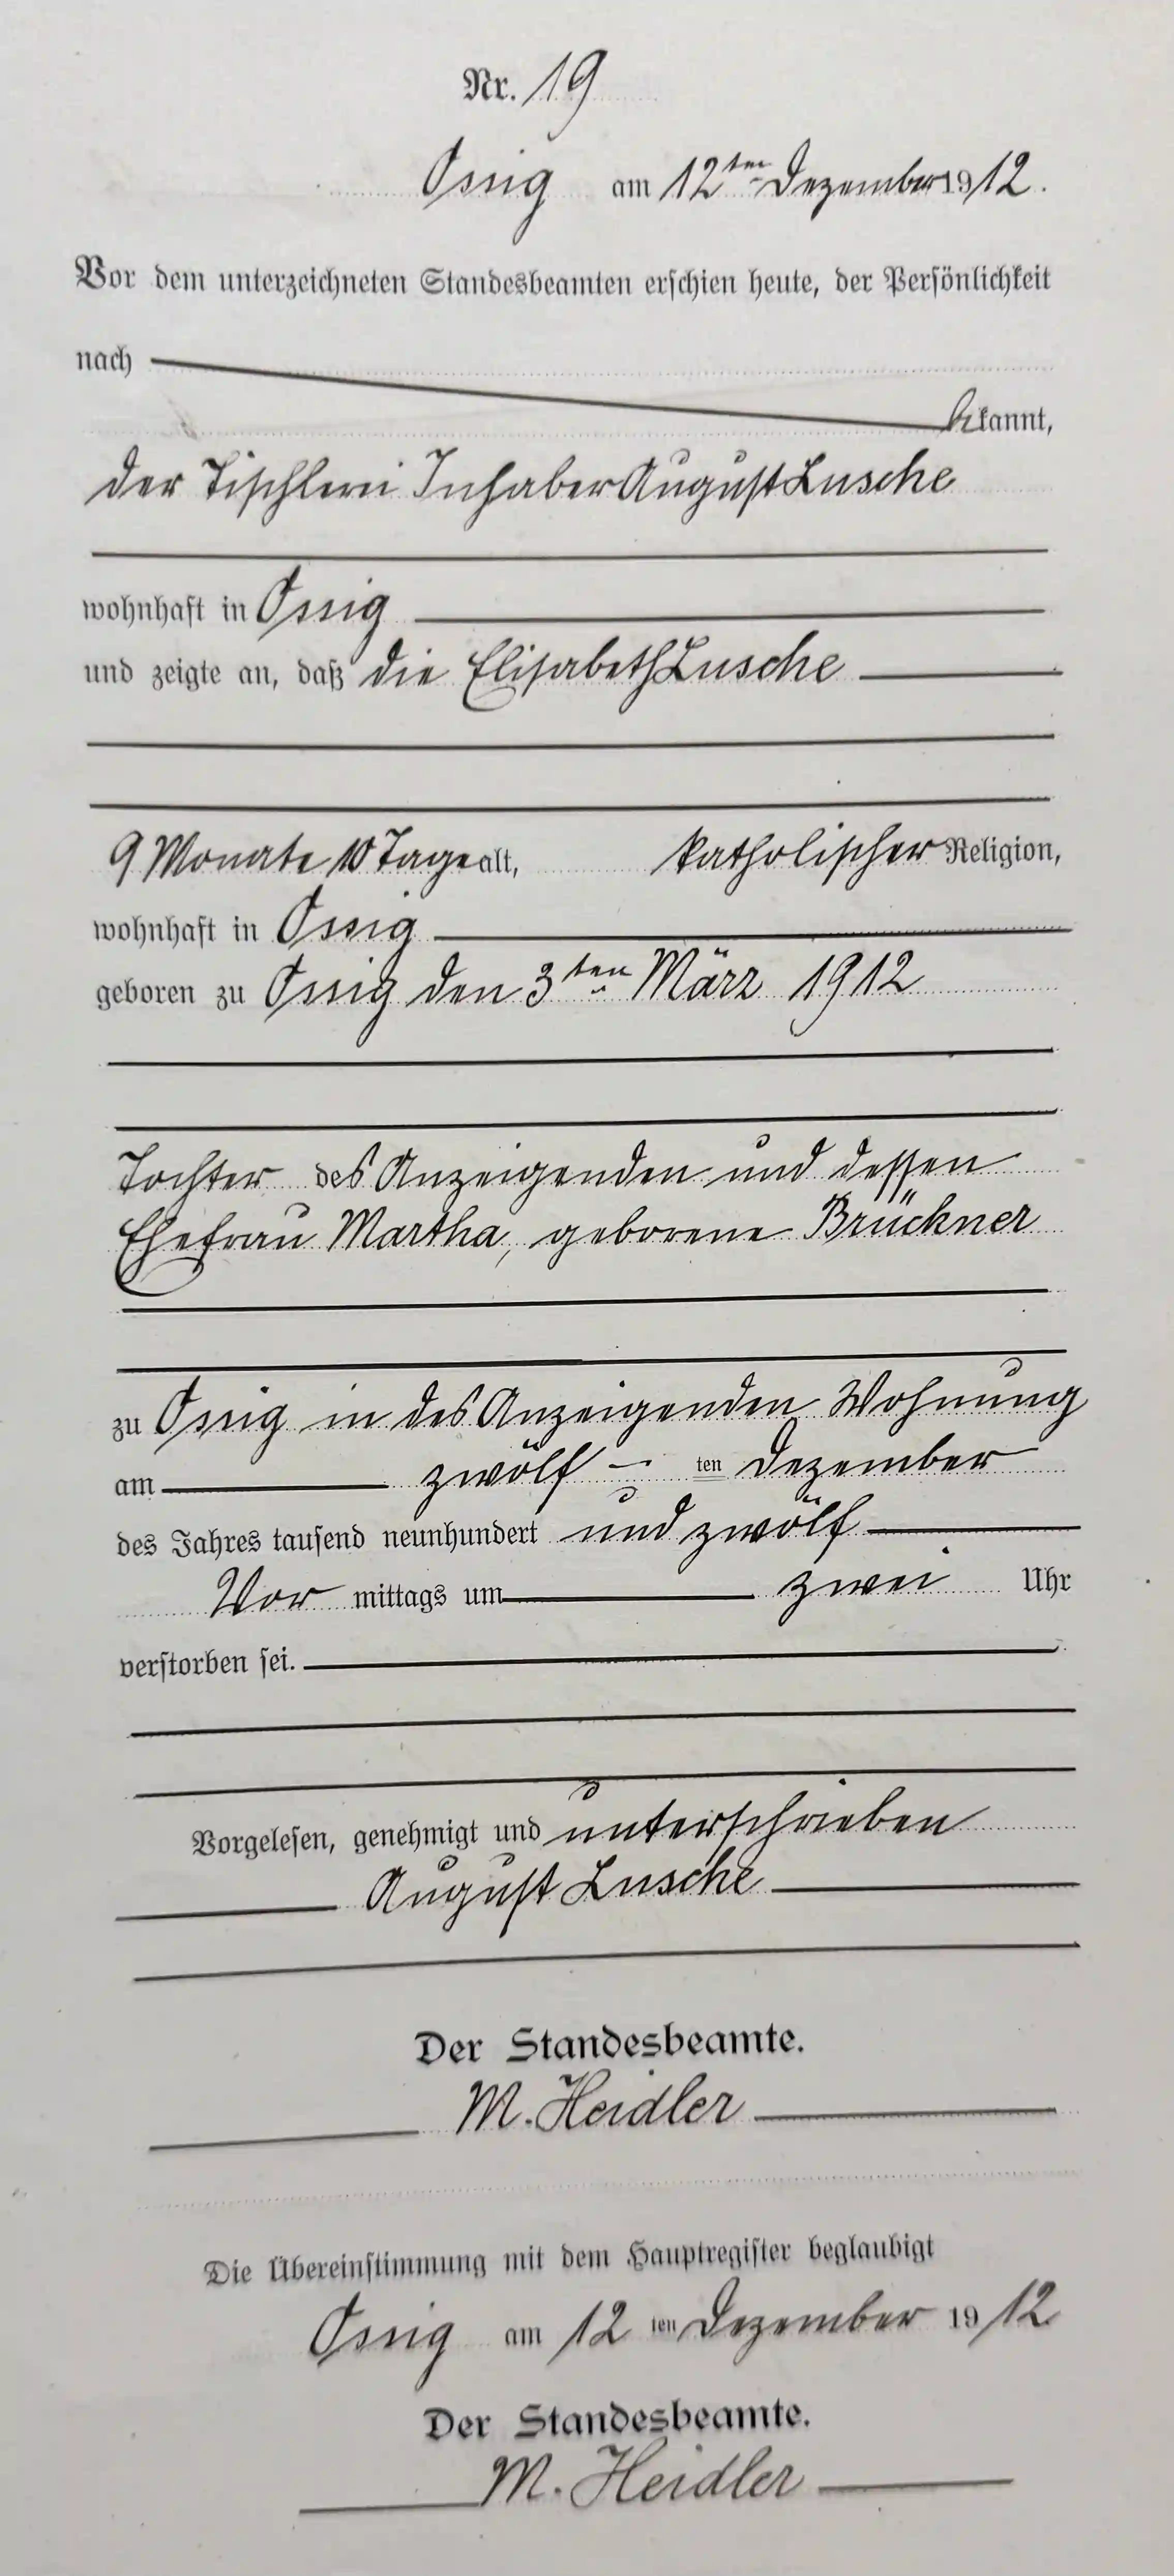 Nr. 19
Ossig am 12ten Dezember 1912.
Vor dem unterzeichneten Standesbeamten erschien heute, der Persönlichkeit
nach
bekannt,
der Tischlerei Inhaber August Lusche
wohnhaft in Ossig
und zeigte an, daß die Elisabeth Lusche
9 Monate 10 Tage alt, katholischer Religion,
wohnhaft in Ossig
geboren zu Ossig den 3ten März 1912
Tochter des Anzeigenden und dessen
Ehefrau Martha, geborene Brückner
zu Ossig in des Anzeigenden Wohnung
am zwölf ten Dezember
des Jahres tausend neunhundert und zwölf
Vor mittags um zwei Uhr
verstorben sei.
Vorgelesen, genehmigt und unterschrieben
August Lusche
Der Standesbeamte.
M. Heidler
Die Übereinstimmung mit dem Hauptregister beglaubigt
Ossig am 12 ten Dezember 1912
Der Standesbeamte.
M. Heidler